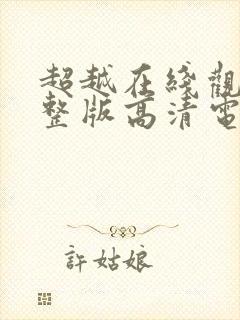 超越在綫觀
整版高清電
許姑娘